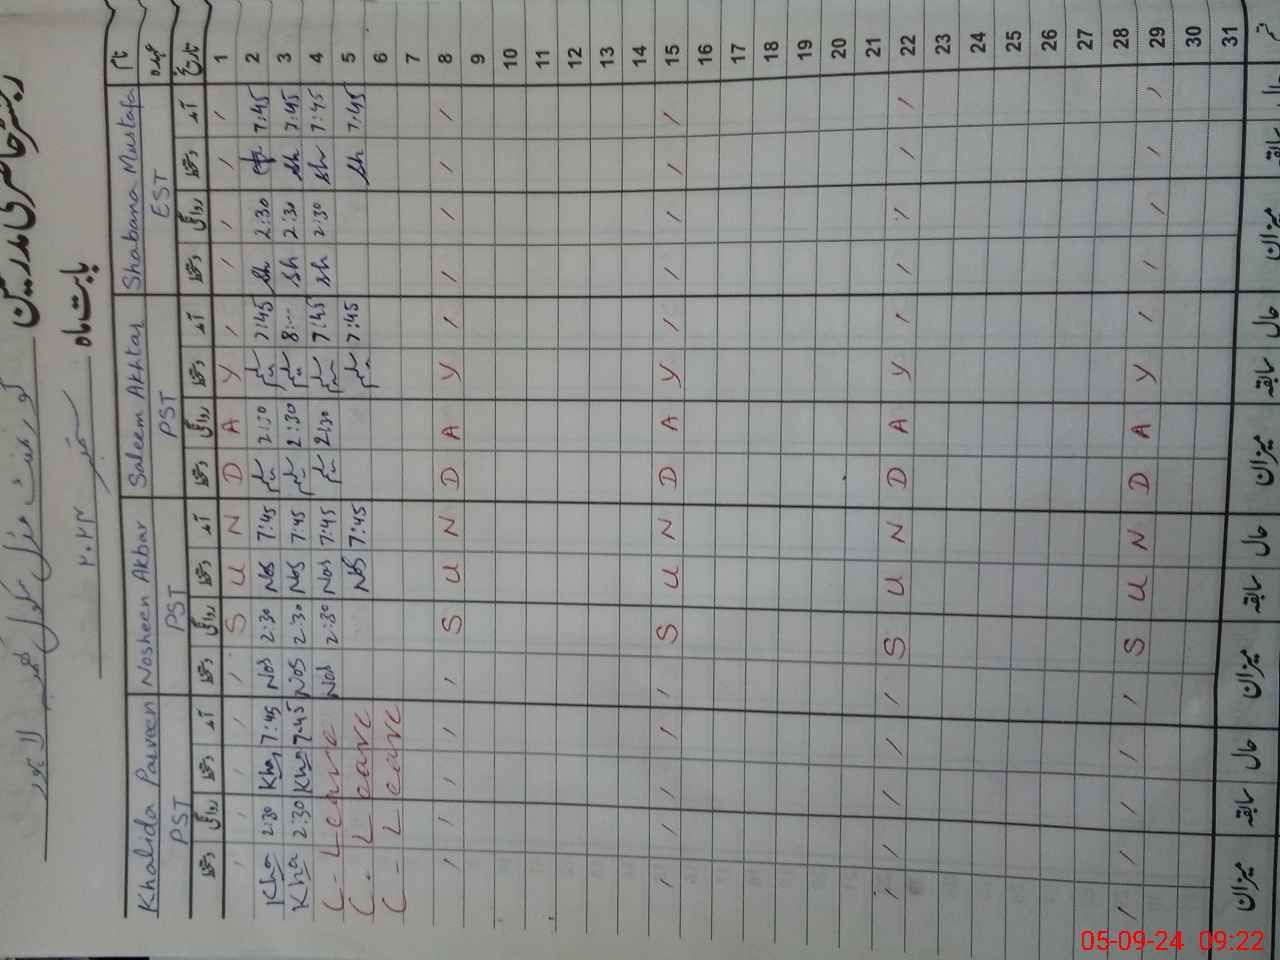 رجسٹر حاضری مدرسین گورنمنٹ لاہور
بابت ماہ ستمبر ۲۰۲۴
Khalida Parveen Nosheen Akbar Saleem Akhtar Shabana Mustafa نام
PST PST PST EST عہدہ
دستخط روانگی دستخط آمد دستخط روانگی دستخط آمد دستخط روانگی دستخط آمد دستخط روانگی دستخط آمد تاریخ
/ / / / / S U N D A Y / / / / / 1
Kha 2:30 Kha 7:45 Nos 2:30 Nos 7:45 2:30 7:45 Sh 2:30 7:45 2
Kha 2:30 Kha 7:45 Nos 2:30 Nos 7:45 2:30 8:... Sh 2:30 Sh 7:45 3
C - Leave Nos 2:30 Nos 7:45 2:30 7:45 Sh 2:30 Sh 7:45 4
C - Leave Nos 7:45 7:45 Sh 7:45 5
C - Leave 6
7
/ / / / / S U N D A Y / / / / / 8
9
10
11
12
13
14
/ / / / / S U N D A Y / / / / / 15
16
17
18
19
20
21
/ / / / / S U N D A Y / / / / / 22
23
24
25
26
27
28
/ / / / / S U N D A Y / / / / / 29
30
31
میزان سابقہ حال میزان سابقہ حال میزان سابقہ حال میزان سابقہ حال
05-09-24 09:22